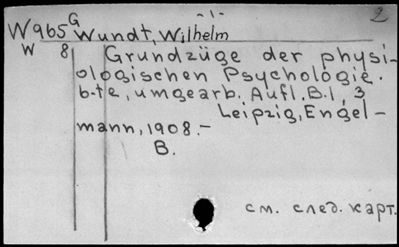 -1-
2
W965 G Wundt, Wilhelm
W 8 Grundzüge der physi-
ologischen Psychologie.
6-te, umgearb. Aufl. B.1, 3
Leipzig, Engel-
mann, 1908.-
B.
см. след. карт.